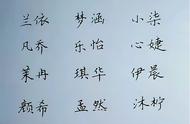 兰依 梦涵 小柒
凡乔 乐怡 心婕
茉冉 琪华 伊晨
颜希 孟然 沐柠